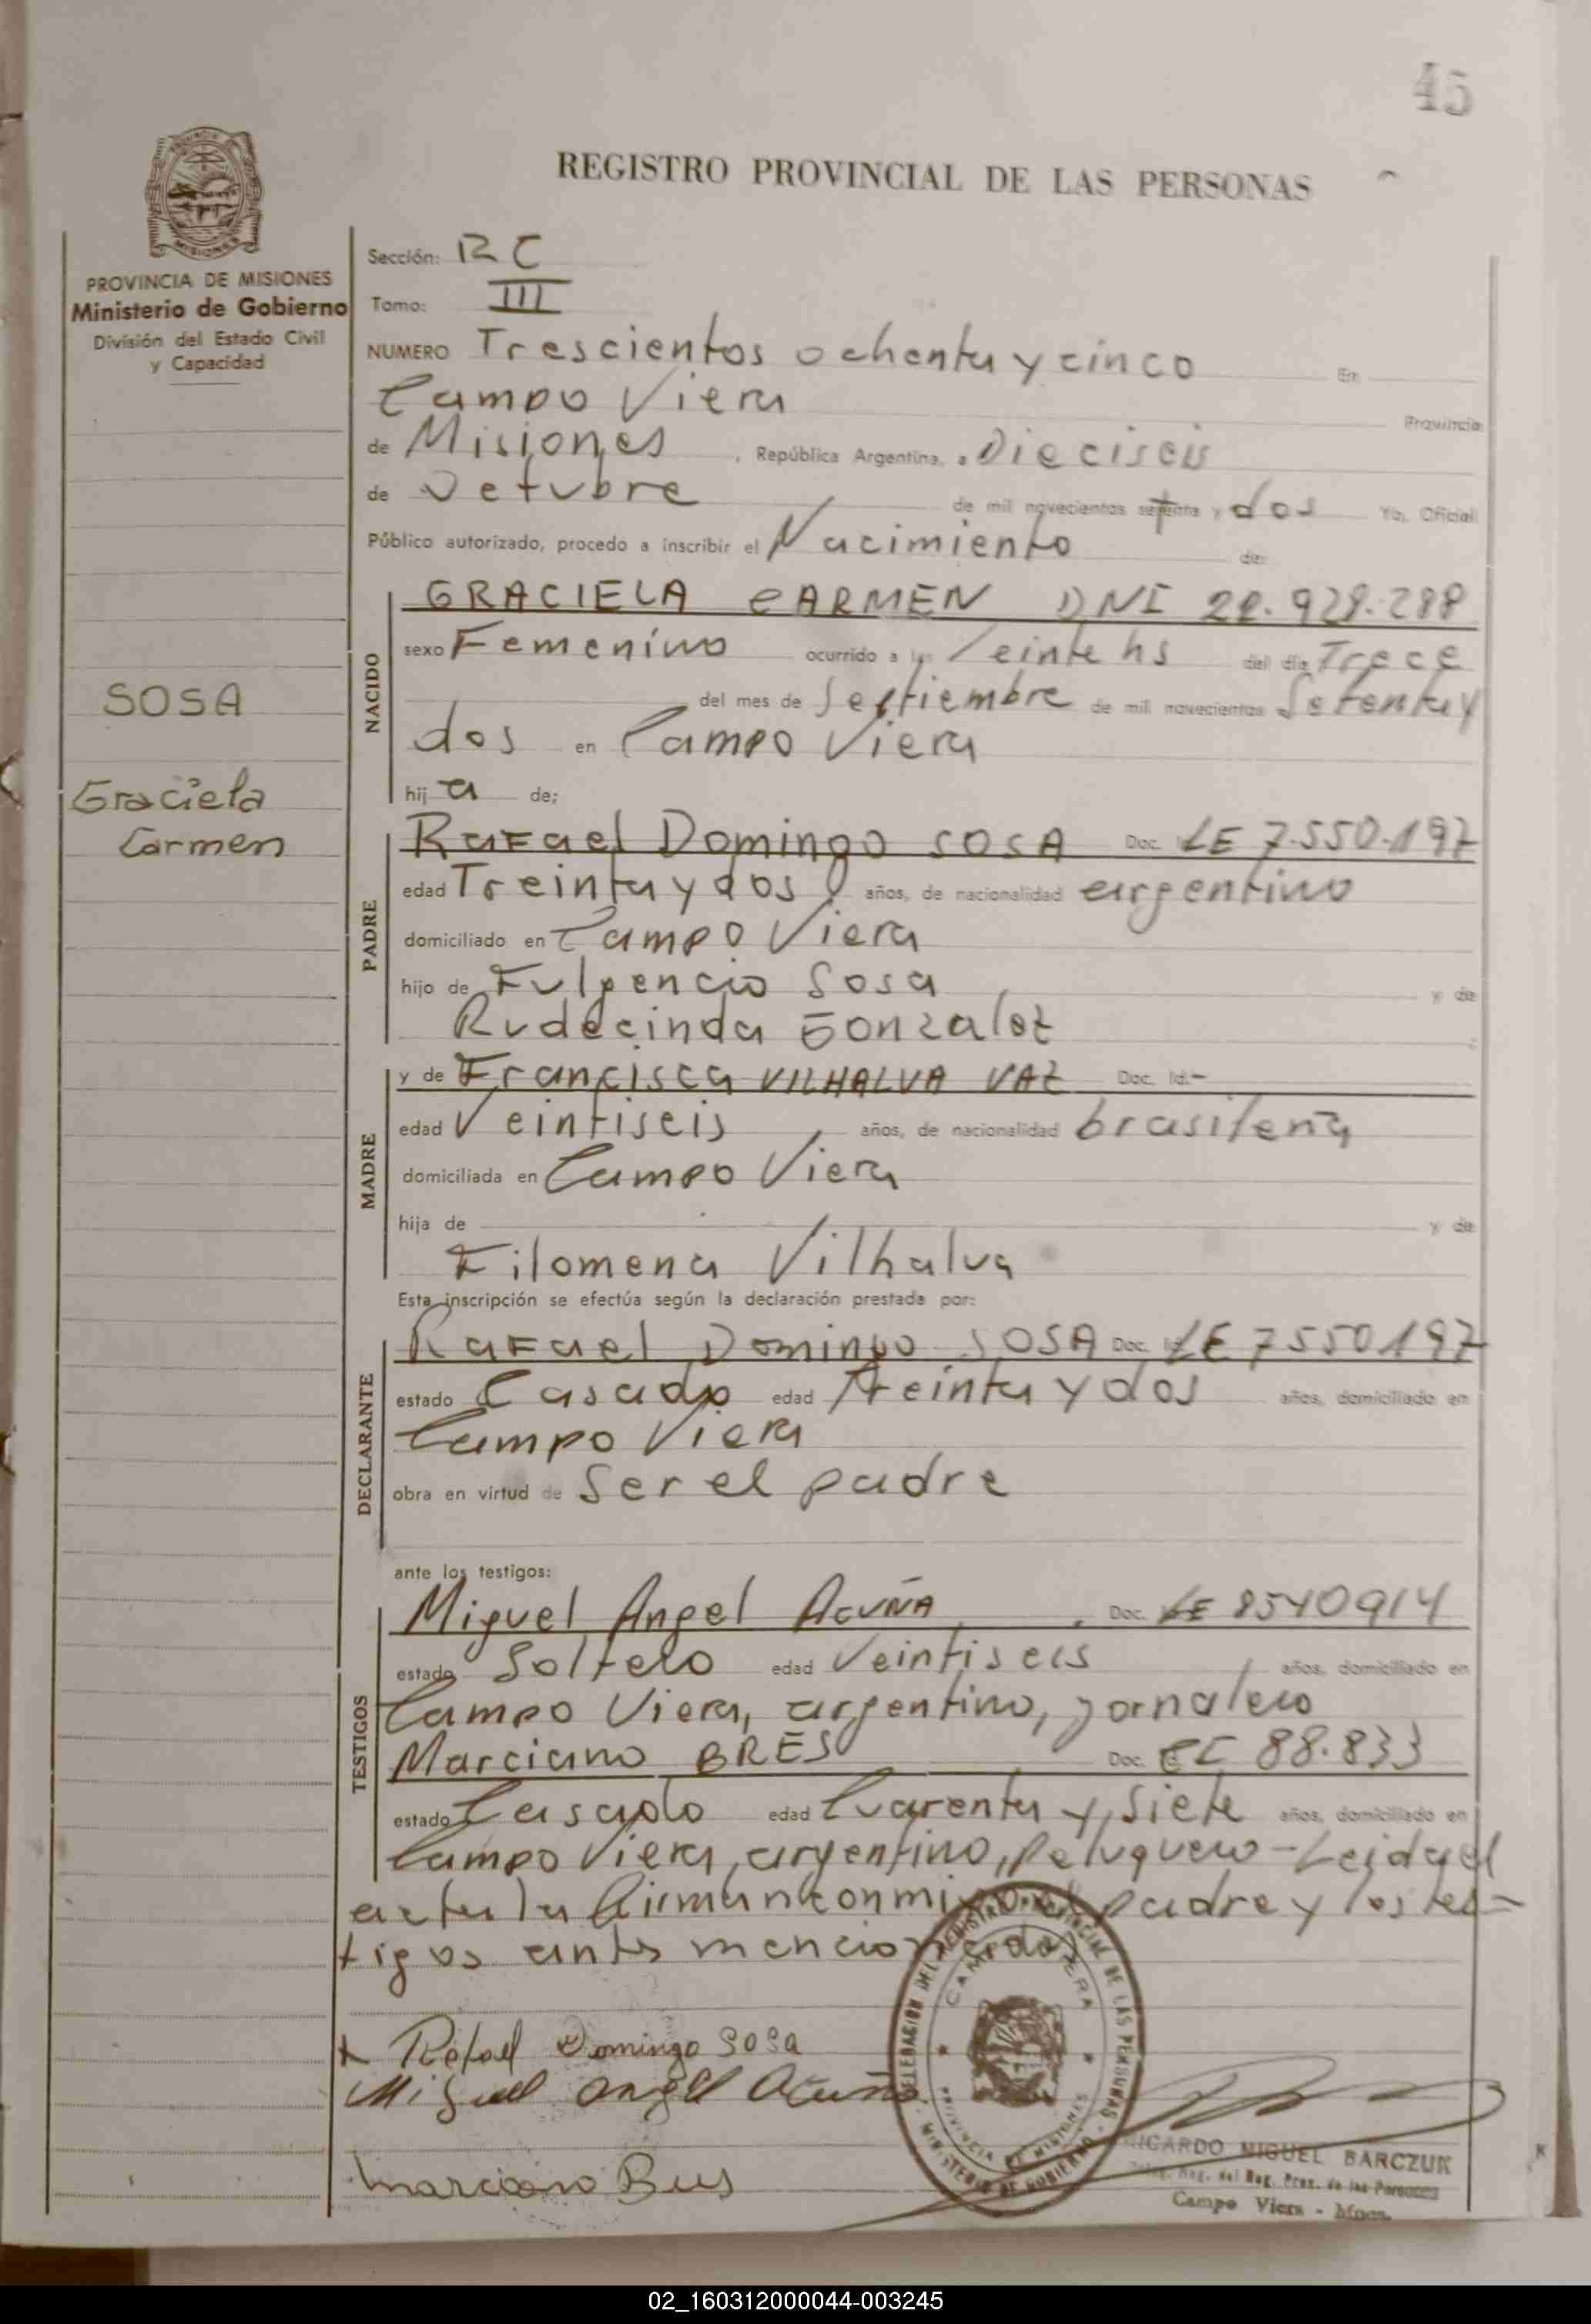 45
REGISTRO PROVINCIAL DE LAS PERSONAS
PROVINCIA DE MISIONES
Ministerio de Gobierno
División del Estado Civil
y Capacidad
SOSA
Graciela
Carmen
Sección: RC
Tomo: III
NUMERO Trescientos ochenta y cinco En
Campo Viera Provincia
de Misiones, República Argentina, a Dieciseis
de Octubre de mil novecientos setenta y dos Yo, Oficial
Público autorizado, procedo a inscribir el Nacimiento de:
NACIDO
GRACIELA CARMEN DNI 22.929.298
sexo Femenino ocurrido a las Veinte hs del día Trece
del mes de Septiembre de mil novecientos Setenta y
dos en Campo Viera
hij a de;
PADRE
Rafael Domingo SOSA Doc. LE 7.550.197
edad Treinta y dos años, de nacionalidad argentino
domiciliado en Campo Viera
hijo de Fulgencio Sosa y de
Rudecinda Gonzalez
MADRE
y de Francisca VILHALVA VAZ Doc. Id.-
edad Veintiseis años, de nacionalidad brasileña
domiciliada en Campo Viera
hija de y de
Filomena Vilhalva
Esta inscripción se efectúa según la declaración prestada por:
DECLARANTE
Rafael Domingo SOSA Doc. LE 7550197
estado Casado edad treinta y dos años, domiciliado en
Campo Viera
obra en virtud de Ser el padre
ante los testigos:
TESTIGOS
Miguel Angel ACUÑA Doc. LE 8540914
estado Soltero edad Veintiseis años, domiciliado en
Campo Viera, argentino, jornalero
Marciano BRES Doc. CI 88.833
estado Casado edad Cuarenta y siete años, domiciliado en
Campo Viera, argentino, Peluquero - Leida el
acta la firman conmigo el padre y los tes-
tigos antes mencionados
x Rafael Domingo SOSA
Miguel angel Acuña
Marciano Bres
DELEGACION DEL REGISTRO PROVINCIAL DE LAS PERSONAS
CAMPO VIERA
PROVINCIA DE MISIONES
MINISTERIO DE GOBIERNO
RICARDO MIGUEL BARCZUK
Deleg. Reg. del Reg. Prov. de las Personas
Campo Viera - Mnes.
02_160312000044-003245